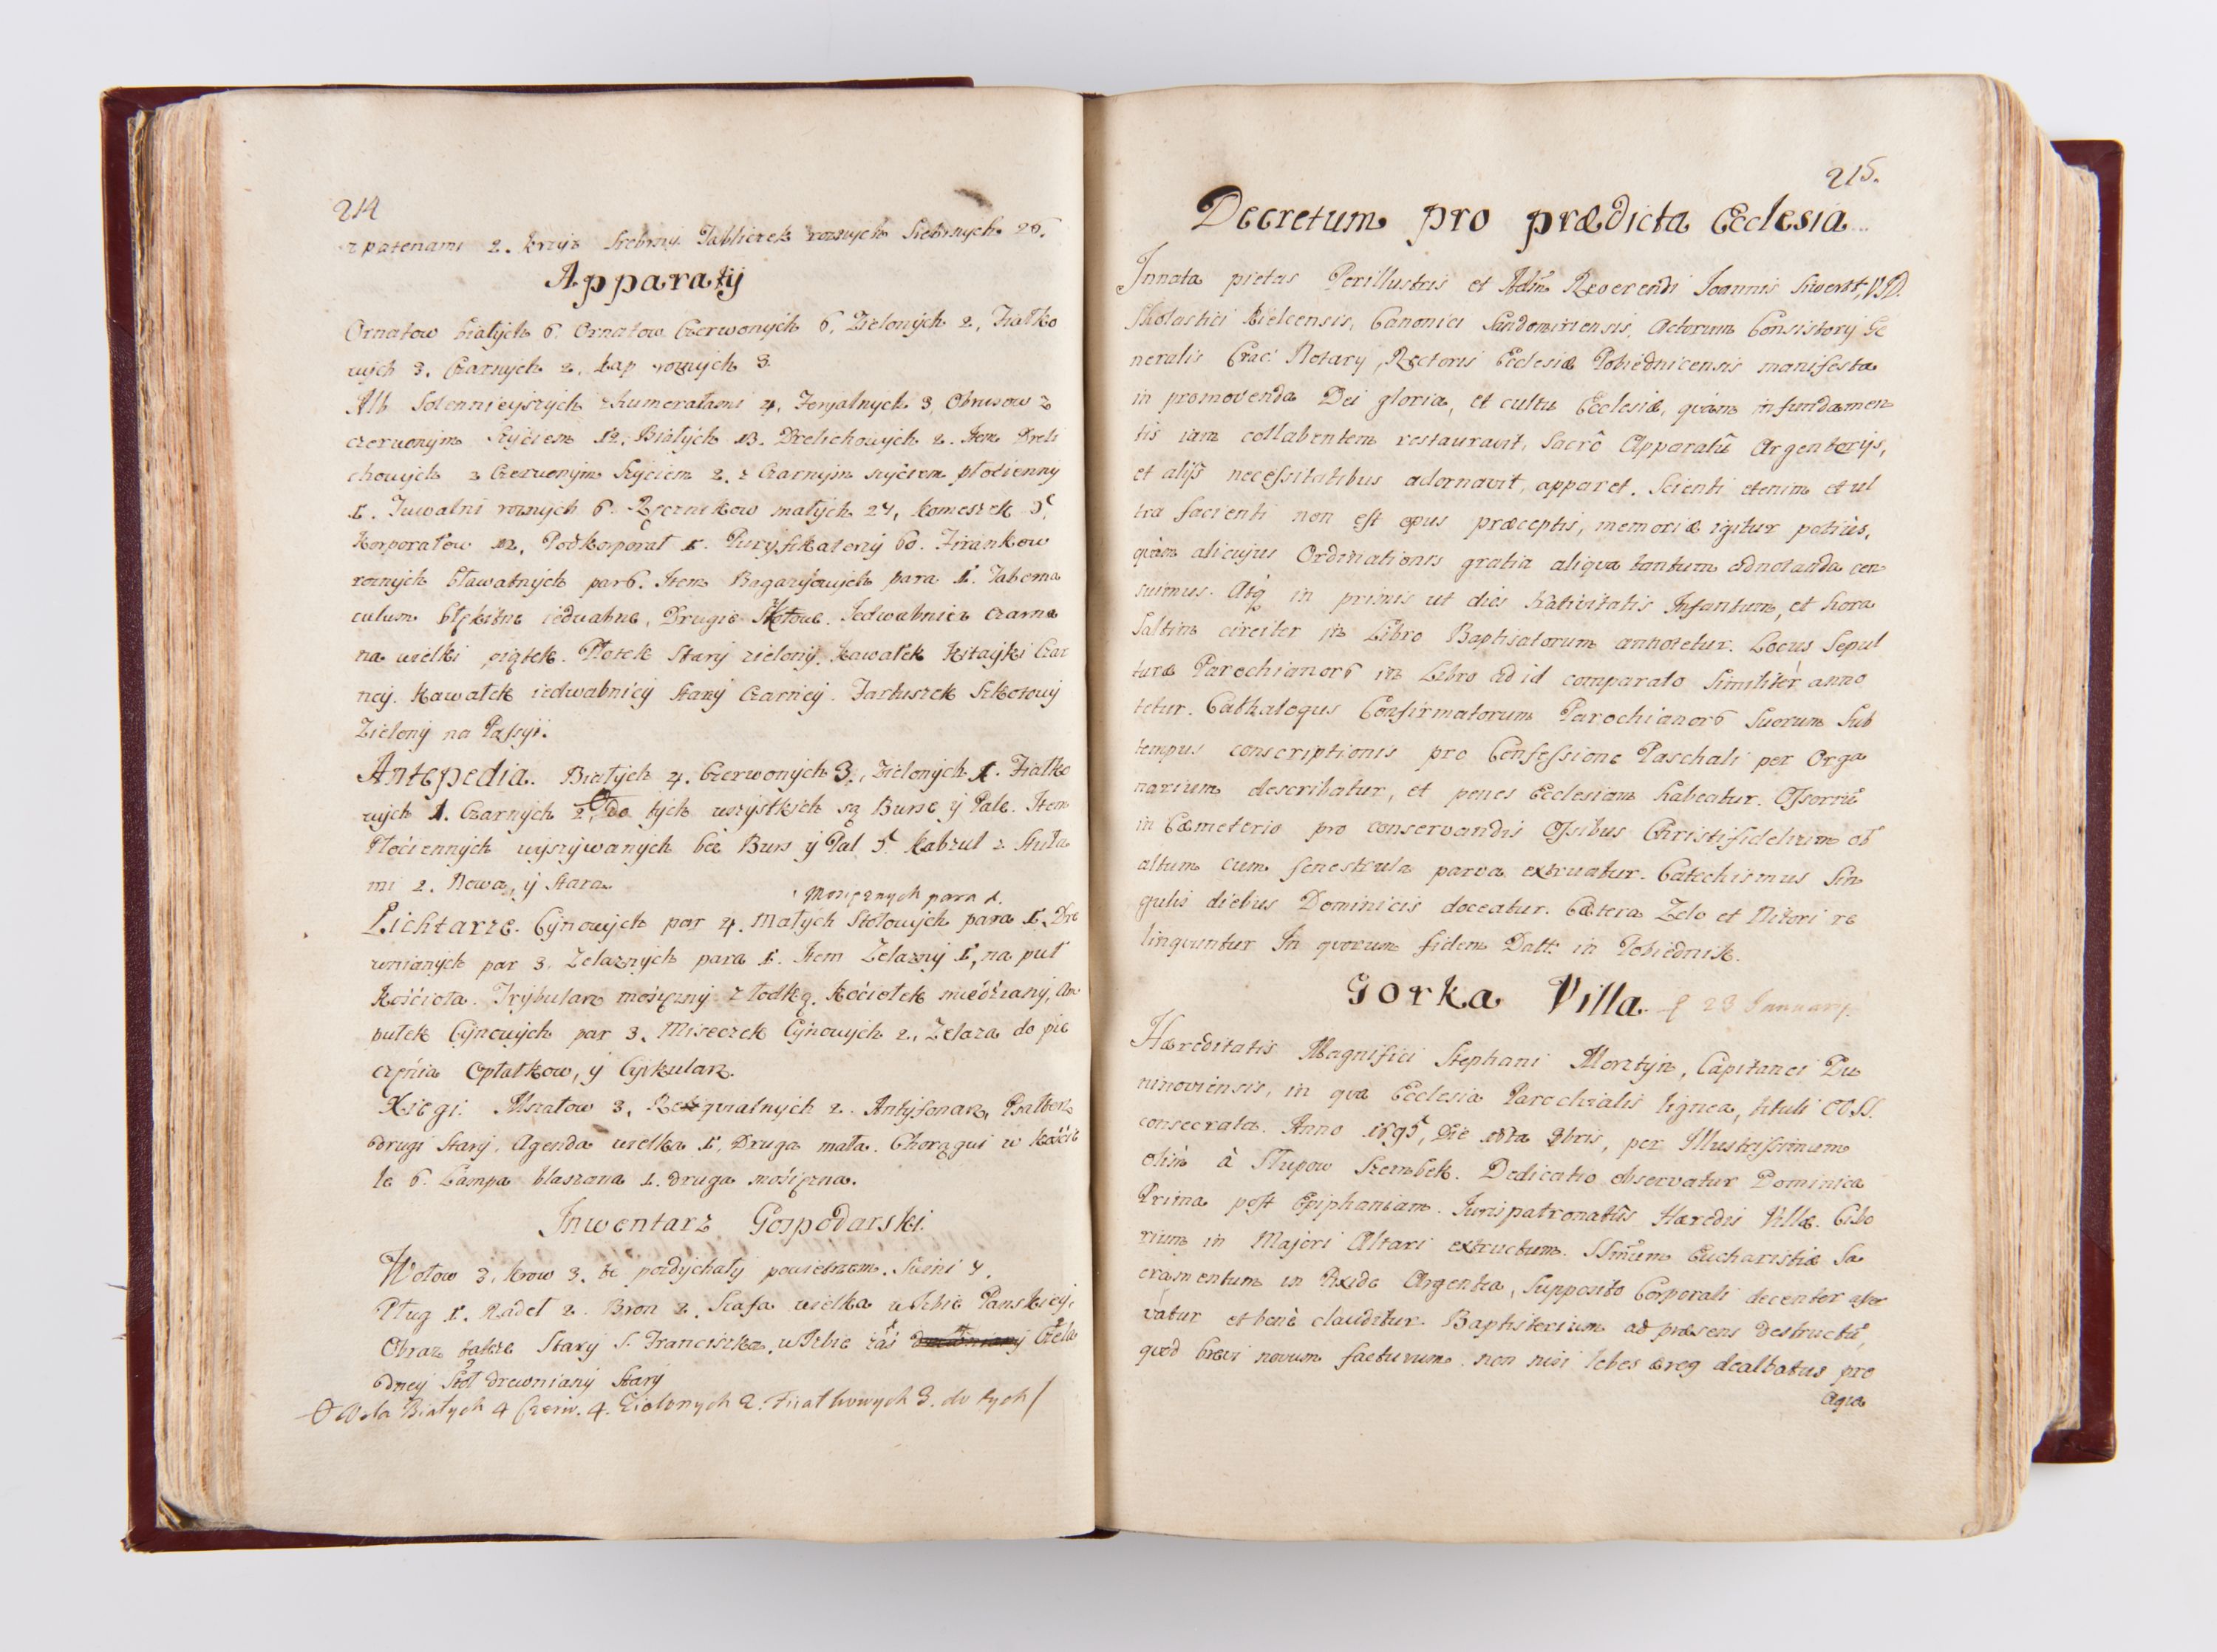 214
z patenami 2. krzyz Srebrny. Tabliczek roznych Srebrnych 26.
Apparaty
Ornatow białych 6. Ornatow Czerwonych 6, Zielonych 2, Fiałko
wych 3. Czarnych 2, kap roznych 3.
Alb Solennieyszych z humerałami 4, Feryalnych 3, Obrusow z
czerwonym Szyciem 12, Białych 13. Drelichowych 2. Item Dreli
chowych z Czerwonym Szyciem 2. z Czarnym szyciem płocienny
1. Tuwalni roznych 6. Ręcznikow małych 27, komeszek 5.
Korporałow 12, Podkorporał 1. Puryfikaterzy 60. Firankow
roznych bławatnych par 6. Item Bagazyowych para 1. Taberna
culum błękitne iedwabne, Drugie Złotowe. Jedwabnica czarna
na wielki piątek. Płatek Stary zielony. Kawałek Kitayki Czar
ney. Kawałek iedwabnicy Stary Czarney. Fartuszek Szkotowy
Zielony na Passyi.
Antepedia. Białych 4. Czerwonych 3., Zielonych 1. Fiałko
wych 1. Czarnych 2, do tych wszystkich są Bursę y Pale. Item
Płóciennych wyszywanych bez Burs y Pal 5. Kabzul z Stuła
mi 2. Nowa, y Stara.
Mosiężnych para 1.
Lichtarze. Cynowych par 4. Małych Stołowych para 1. Dre
wnianych par 3. Zelaznych para 1. Item Zelazny 1, na puł
Kościoła. Trybularz mosiężny z łodką. Kociołek miedziany, Am
pułek Cynowych par 3. Miseczek Cynowych 2, Zelaza do pie
czenia Opłatkow, y Cyrkularz.
Xiegi. Mszałow 3, Rekquialnych 2. Antyfonarz, Psałterz
drugi Stary. Agenda wielka 1, Druga mała. Chorągwi w kościе
le 6. Lampa blaszana 1. druga mosiężna.
Inwentarz Gospodarski.
Wołow 3, krow 3. te pozdychały powietrzem. Swini 7.
Pług 1. Radeł 2. Bron 2. Szafa wielka w Izbie Panskiey,
Obraz także Stary S. Franciszka, w Izbie zas Czela
dney Stoł drewniany Stary
Wela Białych 4 Czerw. 4. Zielonych 2. Fiałkowych 3. do tych /
215.
Decretum pro prædicta Ecclesia
Innata pietas Perillustris et Adm Reverendi Joannis VJD.
Skolastici Kielcensis, Canonici Sandomiriensis, Actorum Consistory Ge
neralis Crac: Notary, Rectoris Ecclesiæ Pobiednicensis manifesta
in promovenda Dei gloria, et cultu Ecclesiæ, quàm in fundamen
tis iam collabentem restauravit, Sacrô Apparatû Argenterijs,
et alijs necessitatibus adornavit, apparet. Scienti etenim et ul
tra facienti non est opus præceptis, memoriæ igitur potiùs,
quàm alicujus Ordinationis gratia aliqua tantum adnotanda cen
suimus. Atq̀ in primis ut dies Nativitatis Infantum, et hora
Saltim circiter in Libro Baptisatorum annotetur. Locus Sepul
turæ Parochianorũ in Libro ad id comparato Similitèr anno
tetur. Cathalogus Confirmatorum Parochianorũ Suorum Sub
tempus conscriptionis pro Confessione Paschali per Orga
narium describatur, et penes Ecclesiam habeatur. Ossorriũ
in Cæmeterio pro conservandis Ossibus Christifidelium ob
altum cum fenestrula parva extruatur. Catechismus Sin
gulis diebus Dominicis doceatur. Cætera Zelo et Nitori re
linquuntur In quorum fidem Datt: in Pobiednik.
Gorka Villa. 23 January.
Hæreditatis Magnifici Stephani Morztyn, Capitanei Du
ninoviensis, in qua Ecclesia Parochialis lignea, tituli OO.SS.
consecrata. Anno 1695, Die 18ta 9bris, per Illustrissimum
olim à Słupow Szembek. Dedicatio observatur Dominica
Prima post Epiphaniam. Jurispatronatûs Hæredis Villæ. Cibo
rium in Majori Altari extructum. SSmum Eucharistiæ Sa
cramentum in Pixide Argentea, Supposito Corporali decenter asser
vatur et benè clauditur. Baptisterium ad præsens destructũ,
quod brevi novum facturum. non nisi lebes æreg dealbatus pro
Aqua